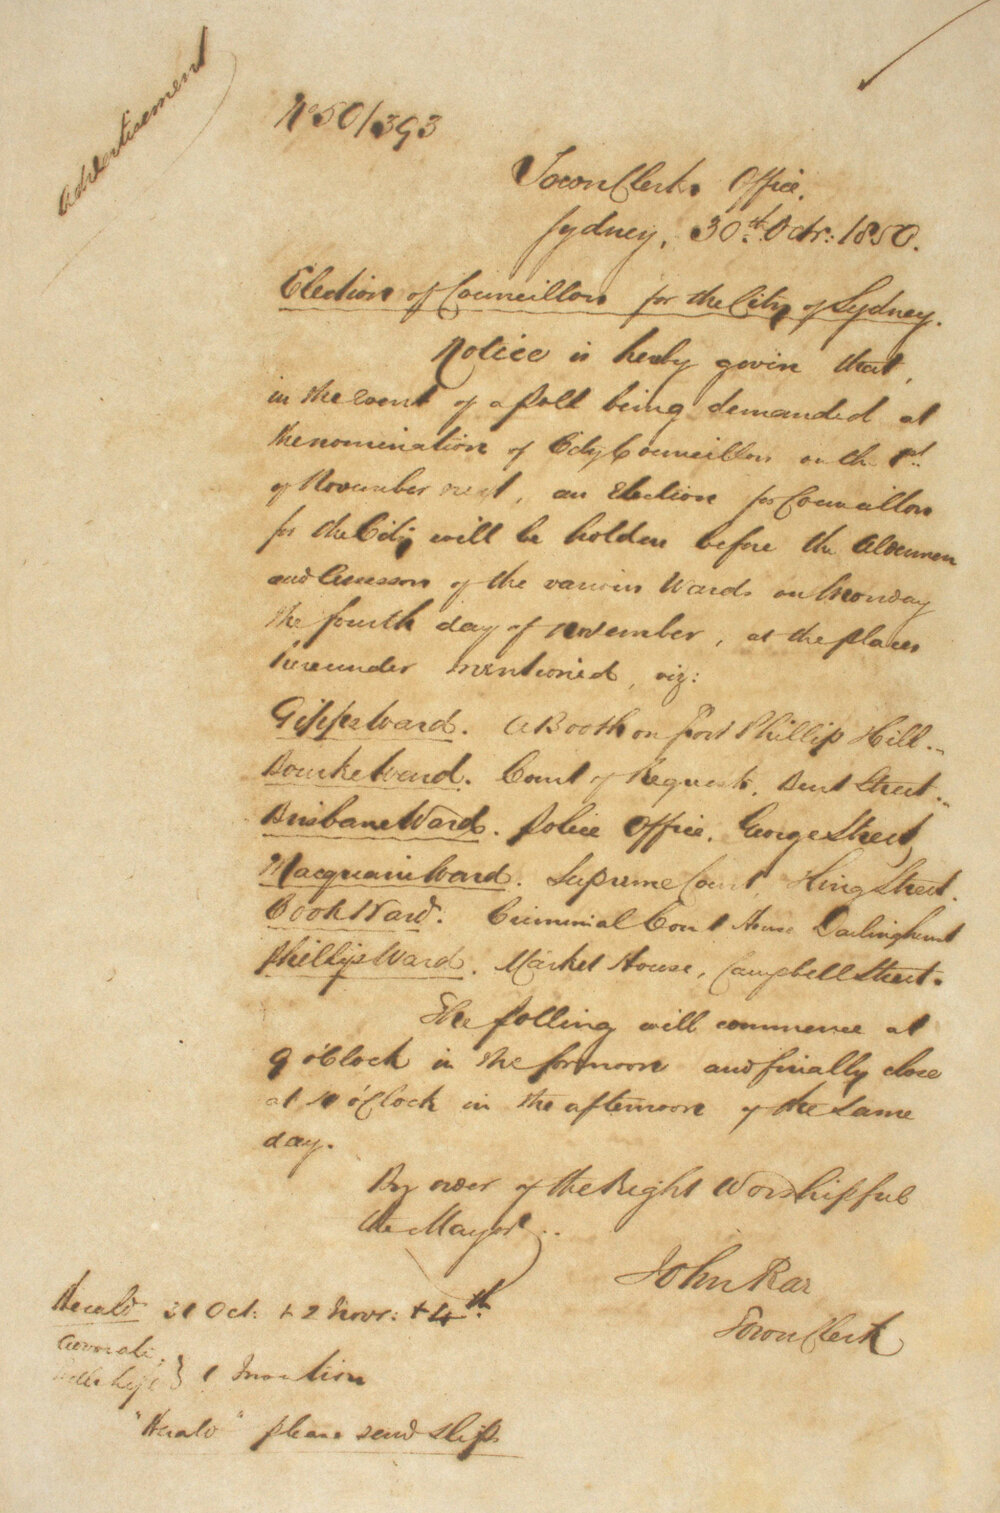 Advertisement
No 50/393
Town Clerks Office,
Sydney, 30th Octr: 1850.
Election of Councillors for the City of Sydney.
Notice is herby given that,
in the event of a poll being demanded at
the nomination of City Councillors on the 1st
of November next, an Election for Councillors
for the City will be holden before the Aldermen
and Assessors of the various Wards on Monday
the fourth day of November, at the places
hereunder mentioned, viz:
Gipps Ward. A Booth on Fort Phillip Hill.
Bourke Ward. Court of Requests, Bent Street.
Brisbane Ward. Police Office, George Street,
Macquarie Ward. Supreme Court, King Street.
Cook Ward. Criminal Court House Darlinghurst
Phillip Ward. Market House, Campbell Street.
The polling will commence at
9 o'Clock in the forenoon and finally close
at 4 o'Clock in the afternoon of the same
day.
By order of the Right Worshipful
the Mayor.
John Rae
Town Clerk
Herald 31 Oct: & 2 Novr: & 4th
1 Insertion
"Herald" please send slips